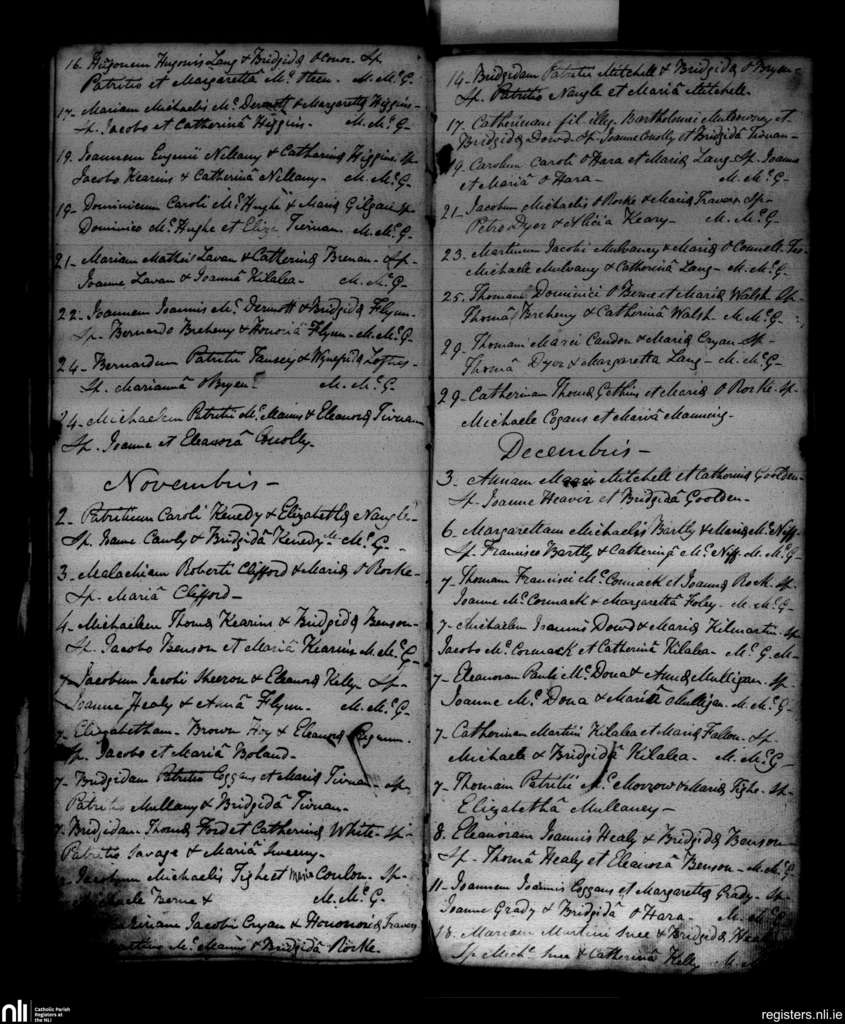 16. Hugonem Hugonis Lang & Bridgidæ O'Conor. Sp.
Patritio et Margarettâ Mc Steen. M. McG.
17. Mariam Michaelis Mc Dermott & Margarettæ Higgins-
Sp. Jacobo et Catherinâ Higgins. M. McG-
19. Joannem Eugenii Nellany & Catherinæ Higgins Sp
Jacobo Kearins & Catherinâ Nellany- M. McG-
19- Dominicum Caroli McHughe & Mariæ Gilgan Sp-
Dominico McHughe et Eliza Tivnan. M. McG-
21- Mariam Mathis Lavan & Catherinæ Brenan- Sp-
Joanne Lavan & Joannâ Kilalea- M. McG-
22- Joannem Joannis McDermott & Bridgidæ Flynn-
Sp- Bernardo Breheny & Honoriâ Flynn- M. McG-
24- Bernardum Patritii Tansey & Loftus-
Sp. Mariannâ O'Bryen M. McG.
24- Michaelem Patritii McManus & Eleanoræ Tivnan
Sp. Joanne et Eleanorâ Conolly.
Novembris-
2- Patritium Caroli Kenedy & Elizabethæ Nangle-
Sp. Cawly & Bridgidâ Kenedy M. McG-
3. Malachiam Roberti Clifford & Mariæ O'Rorke-
Sp- Mariâ Clifford-
4- Michaelem Thomæ Kearins & Bridgidæ Benson-
Sp. Jacobo Benson et Mariâ Kearins M. McG-
7 Jacobum Jacobi Skeron & Eleanoræ Kelly- Sp-
Joanne Healy & Annâ Flynn- M. McG-
7- Elizabetham- Brown Hoy & Eleanoræ
Sp. Jacobo et Mariâ Noland-
7- Bridgidam Patritii Coggans et Mariæ Tivnan- Sp-
Patritio Mullany & Bridgidâ Tivnan-
7. Bridgidam Thomæ Ford et Catherinæ White- Sp-
Patritio Savage & Mariâ Sweeny-
Jacobum Michaelis Tighe et Mariæ Conlon- Sp-
Berne & M. McG.
Jacobi Cryan & Honoriæ Travers
McManus & Bridgidâ Rorke.
14- Bridgidam Patritii Mitchell & Bridgidæ O'Bryen-
Sp. Patritio Nangle et Mariâ Mitchell-
17. Catherinam fil. illeg. Bartholomei et
Bridgidæ Dowd- Sp. Joanne Conolly et Bridgidâ Tivnan-
19. Carolum Caroli O'Hara et Mariæ Lang- Sp. Joanne
et Mariâ O'Hara- M. McG-
21- Jacobum Michaelis O'Rorke & Mariæ Travers Sp-
Petro Dyer & Aliciâ Keary- M. McG-
23. Martinum Jacobi Mulvaney & Mariæ O'Connell.
Michaele Mulvany & Catherinâ Lang- M. McG-
25. Thomam Dominici O'Berne et Mariæ Walsh Sp-
Thomâ Breheny & Catherinâ Walsh M. McG-
29- Thomam Marci Candon & Mariæ Cryan- Sp-
Thomâ Dyer & Margaretta Lang- M. McG-
29- Catherinam Thomæ Gethins et Mariæ O'Rorke- Sp-
Michaele Cogans et Mariâ Manning-
Decembris-
3. Annam Mitchell et Catherinæ Goolden-
Sp- Joanne Heavir et Bridgidâ Goolden-
6. Margarettam Michaelis Bartly & Mariæ McNiff-
Sp. Francisco Bartly & Catherinâ McNiff. M. McG-
7- Thomam Francisci McCormack et Joannæ Rock. Sp.
Joanne McCormack & Margarettâ Foley- M. McG-
7- Michaelem Joannis Dowd & Mariæ Kilmartin Sp
Jacobo McCormack et Catherinâ Kilalea- McG. M-
7- Eleanoram Pauli McDona & Annæ Mulligan. Sp-
Joanne McDona & Mariâ Mulligan. M. McG-
7- Catherinam Martini Kilalea et Mariæ Fallon- Sp-
Michaele & Bridgidâ Kilalea- M. McG-
7- Thomam Patritii McMorrow & Mariæ Tighe- Sp-
Elizabethâ Mullaney-
8. Eleanoram Joannis Healy & Bridgidæ Benson-
Sp- Thomâ Healy et Eleanorâ Benson- M. McG
11- Joannem Joannis Coggans et Margarettæ Grady- Sp-
Joanne Grady & Bridgidâ O'Hara- M. McG-
13. Mariam Martini Snee & Bridgidæ
Sp Michl. Snee & Catherinâ Kelly M. M
nli
Catholic Parish
Registers at
the NLI
registers.nli.ie